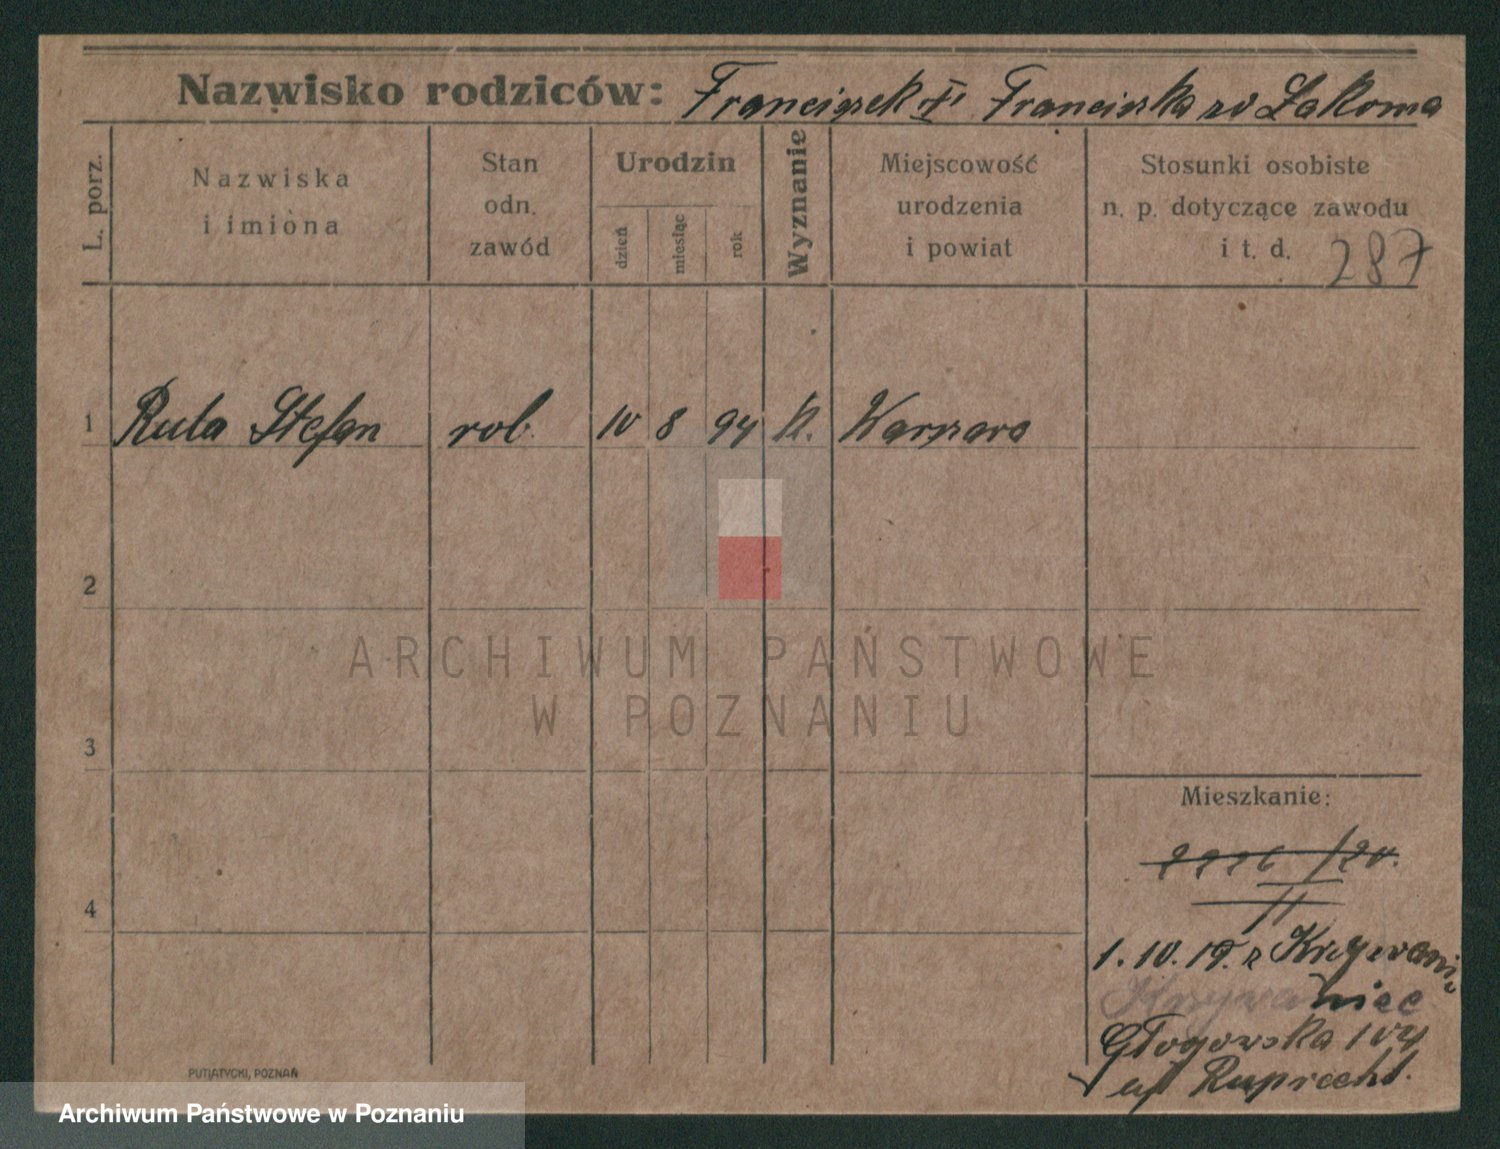 Nazwisko rodziców: Franciszek Franciszka zd Łakoma
L. porz.
Nazwiska
i imiona
Stan
odn.
zawód
Urodzin
dzień
miesiąc
rok
Wyznanie
Miejscowość
urodzenia
i powiat
Stosunki osobiste
n. p. dotyczące zawodu
i t. d. 287
1 Ruta Stefan rob. 10 8 94 k. Warszawa
2
ARCHIWUM PAŃSTWOWE
W POZNANIU
3
Mieszkanie:
4
1. 10. 19. z
niec
Głogowska 104
Ruprecht.
PUTIATYCKI, POZNAŃ
Archiwum Państwowe w Poznaniu